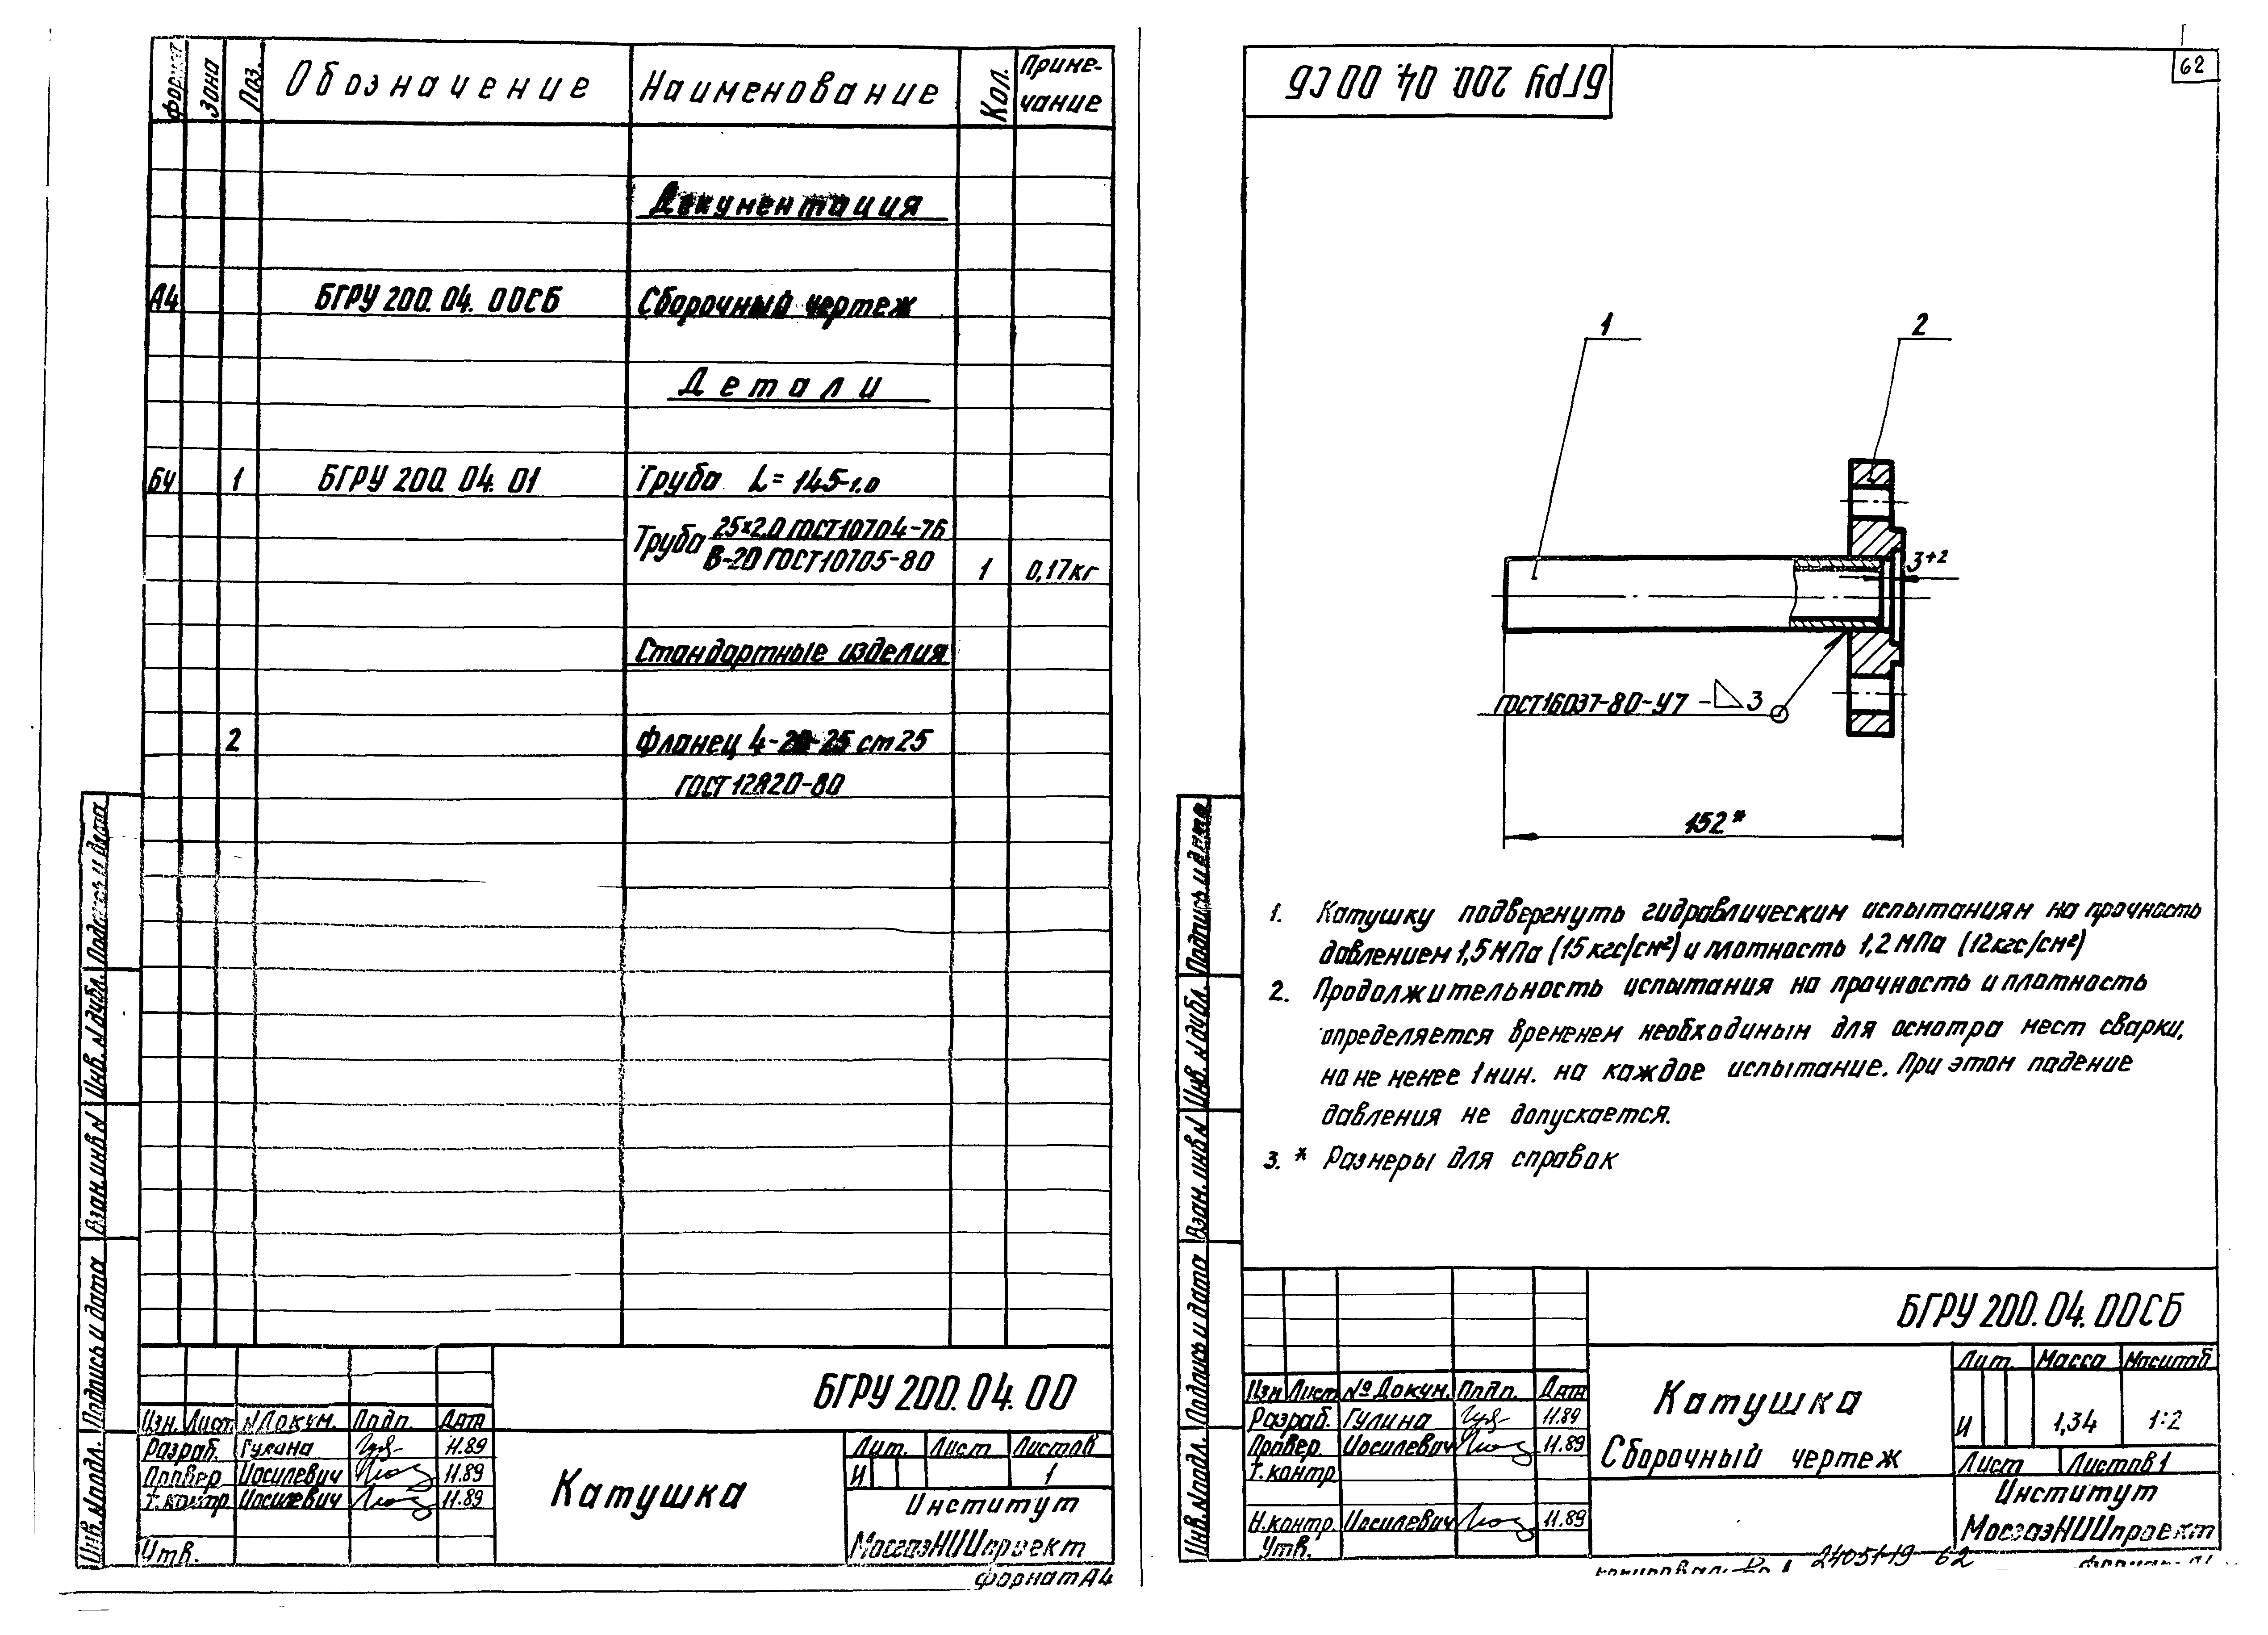 Формат Зона Поз. Обозначение Наименование Кол. Приме-
чание
Документация
А4 БГРУ 200. 04. 00СБ Сборочный чертеж
Детали
БЧ 1 БГРУ 200. 04. 01 Труба L = 145-1.0
Труба 25×2.0 ГОСТ 10704-76
В-20 ГОСТ 10705-80
1 0,17кг
Стандартные изделия
2 Фланец 4-20-25 ст 25
ГОСТ 12820-80
Подпись и дата
Инв. N дубл.
Взам. инв N
Подпись и дата
Инв. N подл.
БГРУ 200. 04. 00
Изм. Лист N Докум. Подп. Дата
Разраб. Гулина 11.89
Провер Иосилевич 11.89
Т. контр. Иосилевич 11.89
Утв.
Катушка
Лит. Лист Листов
И 1
Институт
МосгазНИИпроект
Формат А4
БГРУ 200. 04. 00 СБ
62
1 2
3+2
ГОСТ 16037-80-У7 - 3
152*
1. Катушку подвергнуть гидравлическим испытаниям на прочность
давлением 1,5 МПа (15 кгс/см²) и плотность 1,2 МПа (12кгс/см²)
2. Продолжительность испытания на прочность и плотность
определяется временем необходимым для осмотра мест сварки,
но не менее 1 мин. на каждое испытание. При этом падение
давления не допускается.
3. * Размеры для справок
Подпись и дата
Инв. N дубл.
Взам. инв N
Подпись и дата
Инв. N подл.
БГРУ 200. 04. 00СБ
Изм Лист № Докум. Подп. Дата
Разраб. Гулина 11.89
Провер Иосилевич 11.89
Т. контр
Н. контр. Иосилевич 11.89
Утв.
Катушка
Сборочный чертеж
Лит. Масса Масштаб
И 1,34 1:2
Лист Листов 1
Институт
МосгазНИИпроект
Копировал: 24051-19 62